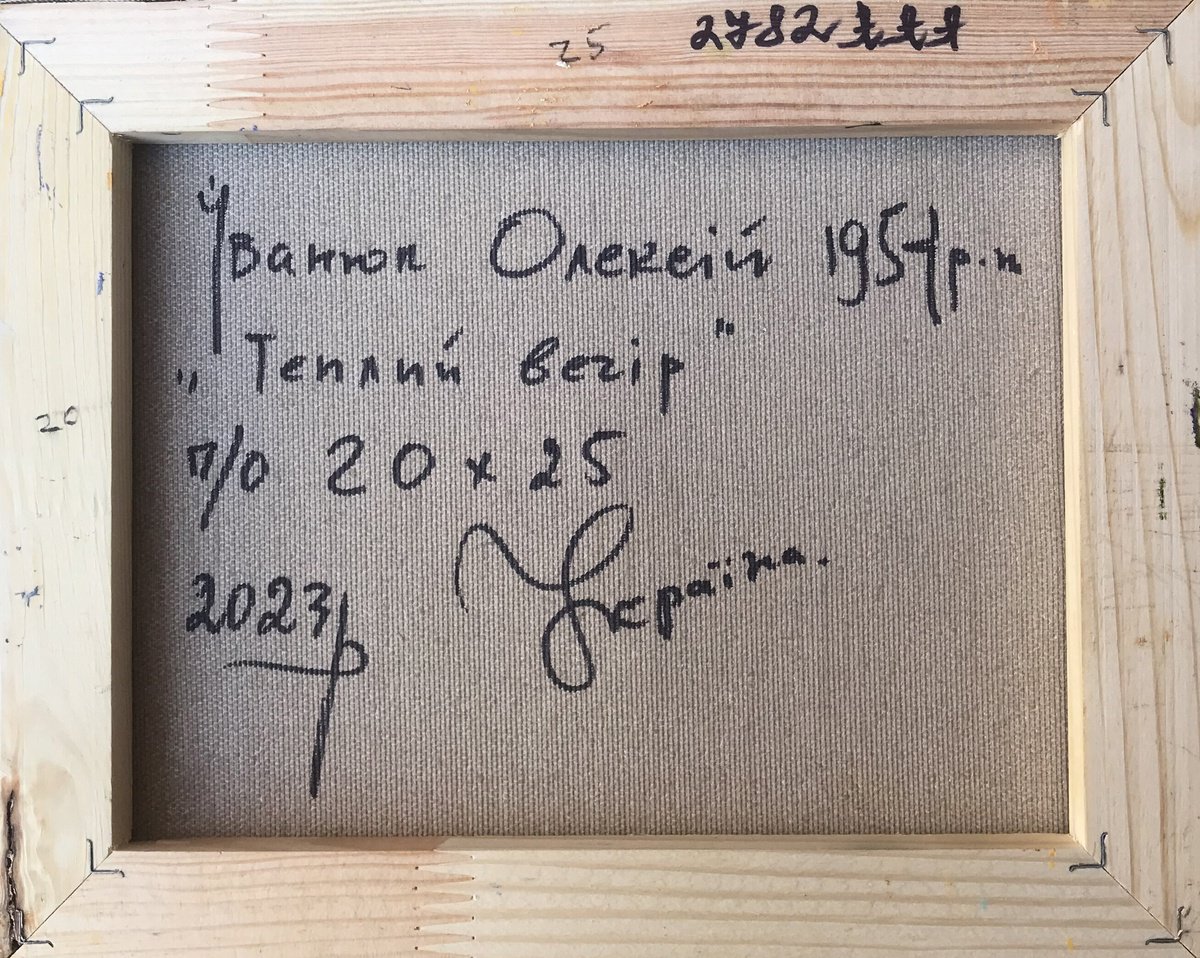 25 2782
Іванюк Олексій 1954 р.н
„Теплий вечір"
20
п/о 20 х 25
2023р
Україна.